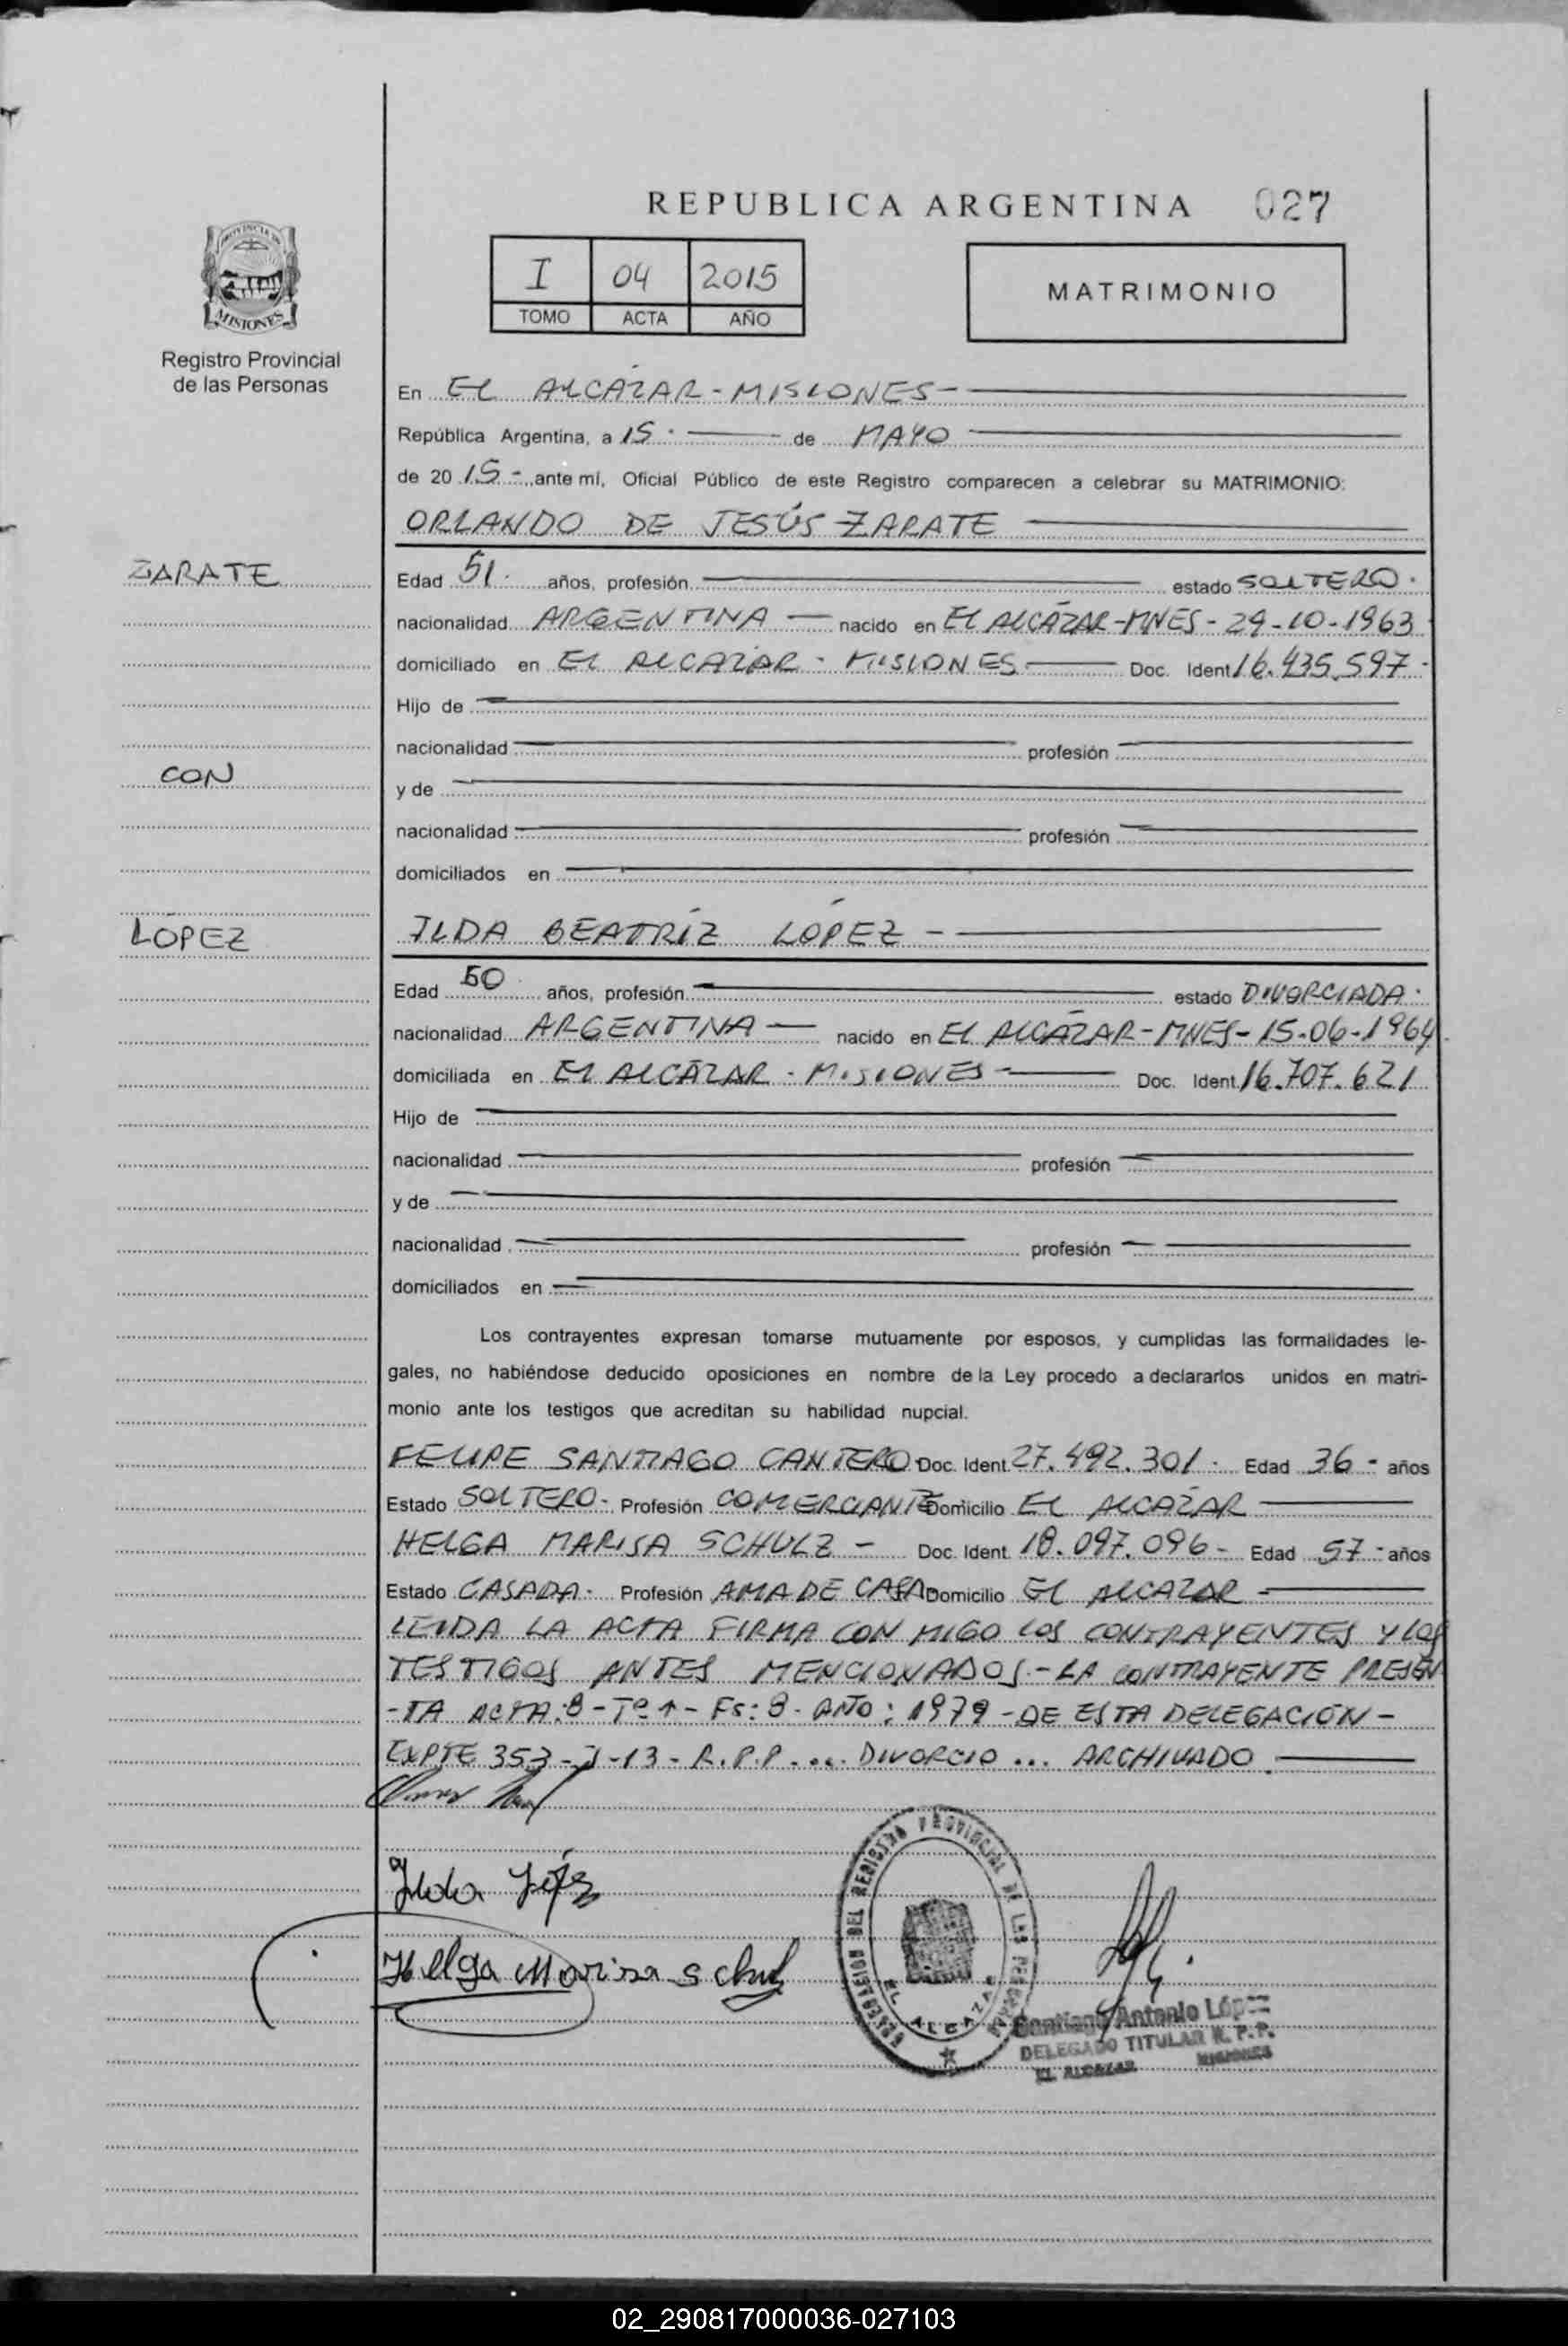 REPUBLICA ARGENTINA 027
PROVINCIA DE
MISIONES
Registro Provincial
de las Personas
I 04 2015
TOMO ACTA AÑO
MATRIMONIO
En EL ALCÁZAR - MISIONES -
República Argentina, a 15 · de MAYO
de 20 15 - ante mí, Oficial Público de este Registro comparecen a celebrar su MATRIMONIO:
ORLANDO DE JESÚS ZARATE
ZARATE
Edad 51 · años, profesión estado SOLTERO ·
nacionalidad ARGENTINA — nacido en EL ALCÁZAR - MNES - 29-10-1963
domiciliado en EL ALCAZAR - MISIONES Doc. Ident 16.435.597 -
Hijo de
nacionalidad profesión
CON
y de
nacionalidad profesión
domiciliados en
LÓPEZ
ILDA BEATRÍZ LÓPEZ -
Edad 50 · años, profesión estado DIVORCIADA ·
nacionalidad ARGENTINA — nacido en EL ALCÁZAR - MNES - 15-06-1964
domiciliada en EL ALCÁZAR - MISIONES - Doc. Ident. 16.707.621
Hijo de
nacionalidad profesión
y de
nacionalidad profesión
domiciliados en
Los contrayentes expresan tomarse mutuamente por esposos, y cumplidas las formalidades le-
gales, no habiéndose deducido oposiciones en nombre de la Ley procedo a declararlos unidos en matri-
monio ante los testigos que acreditan su habilidad nupcial.
FELIPE SANTIAGO CANTERO Doc. Ident. 27.492.301 · Edad 36 - años
Estado SOLTERO - Profesión COMERCIANTE Domicilio EL ALCÁZAR
HELGA MARISA SCHULZ - Doc. Ident. 18.097.096 - Edad 57 - años
Estado CASADA - Profesión AMA DE CASA Domicilio EL ALCAZAR -
LEIDA LA ACTA FIRMA CON MIGO LOS CONTRAYENTES Y LOS
TESTIGOS ANTES MENCIONADOS - LA CONTRAYENTE PRESEN
-TA ACTA: 8 - Tº 1 - Fs: 8 - AÑO: 1979 - DE ESTA DELEGACIÓN -
EXPTE 353 - - 13 - R.P.P .... DIVORCIO ... ARCHIVADO.
Ilda López
Helga Marisa Schulz
DELEGACION DEL REGISTRO PROVINCIAL DE LAS PERSONAS
EL ALCAZAR
Santiago Antonio López
DELEGADO TITULAR R. P. P.
EL ALCAZAR MISIONES
02_290817000036-027103